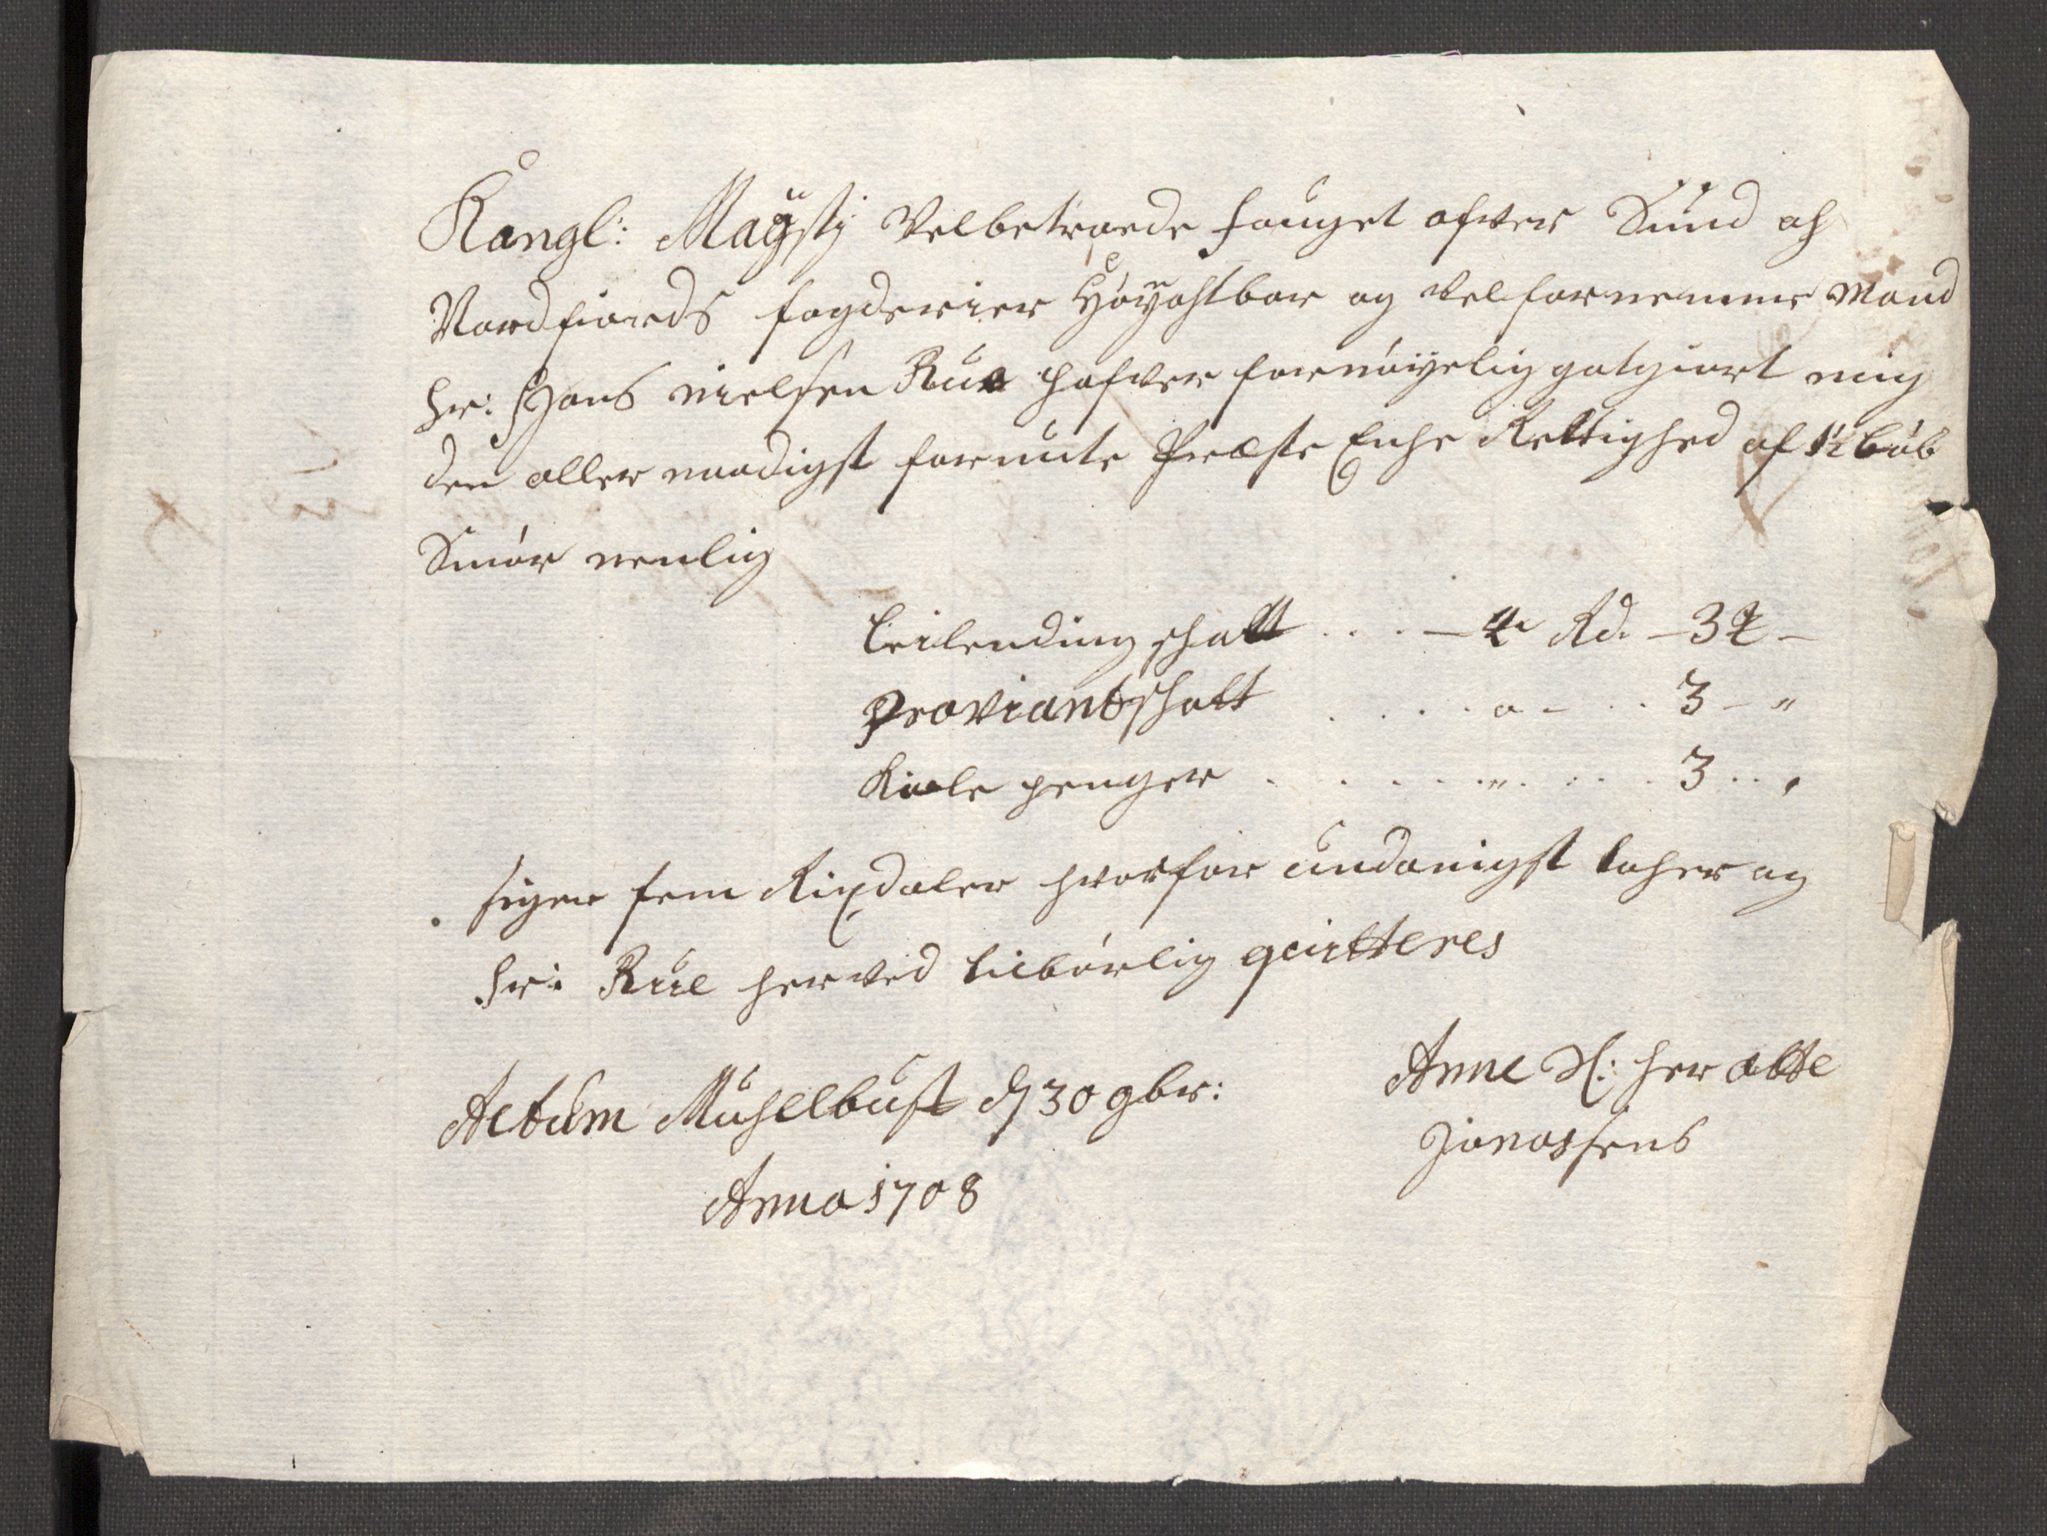 Kongl: Mayſts Velbetroede fouget ofver Sund och
Nordfiords fogderier Höyachtbar og velfornemme Mand
Hr: Hans Nielsen Rue hafver fornöyelig gotgiort mig
den aller naadigst forunte Præste Enche Rettighed af 1½ böb
Smör nemlig
Leilending schatt . . . . – 4 Rd. – 3 ꝶ –
Proviantschatt . . . . „ – . . 3 – „
Kiole penger . . . . . „ . . . 3 . . ,
siger fem Rixdaler hvorfor undanigst tacher og
Hr: Rue herved tilbörlig qvitteres
Actum Muhlbust d 30 9br:
Anno 1708
Anne Sl: her
Jonassens